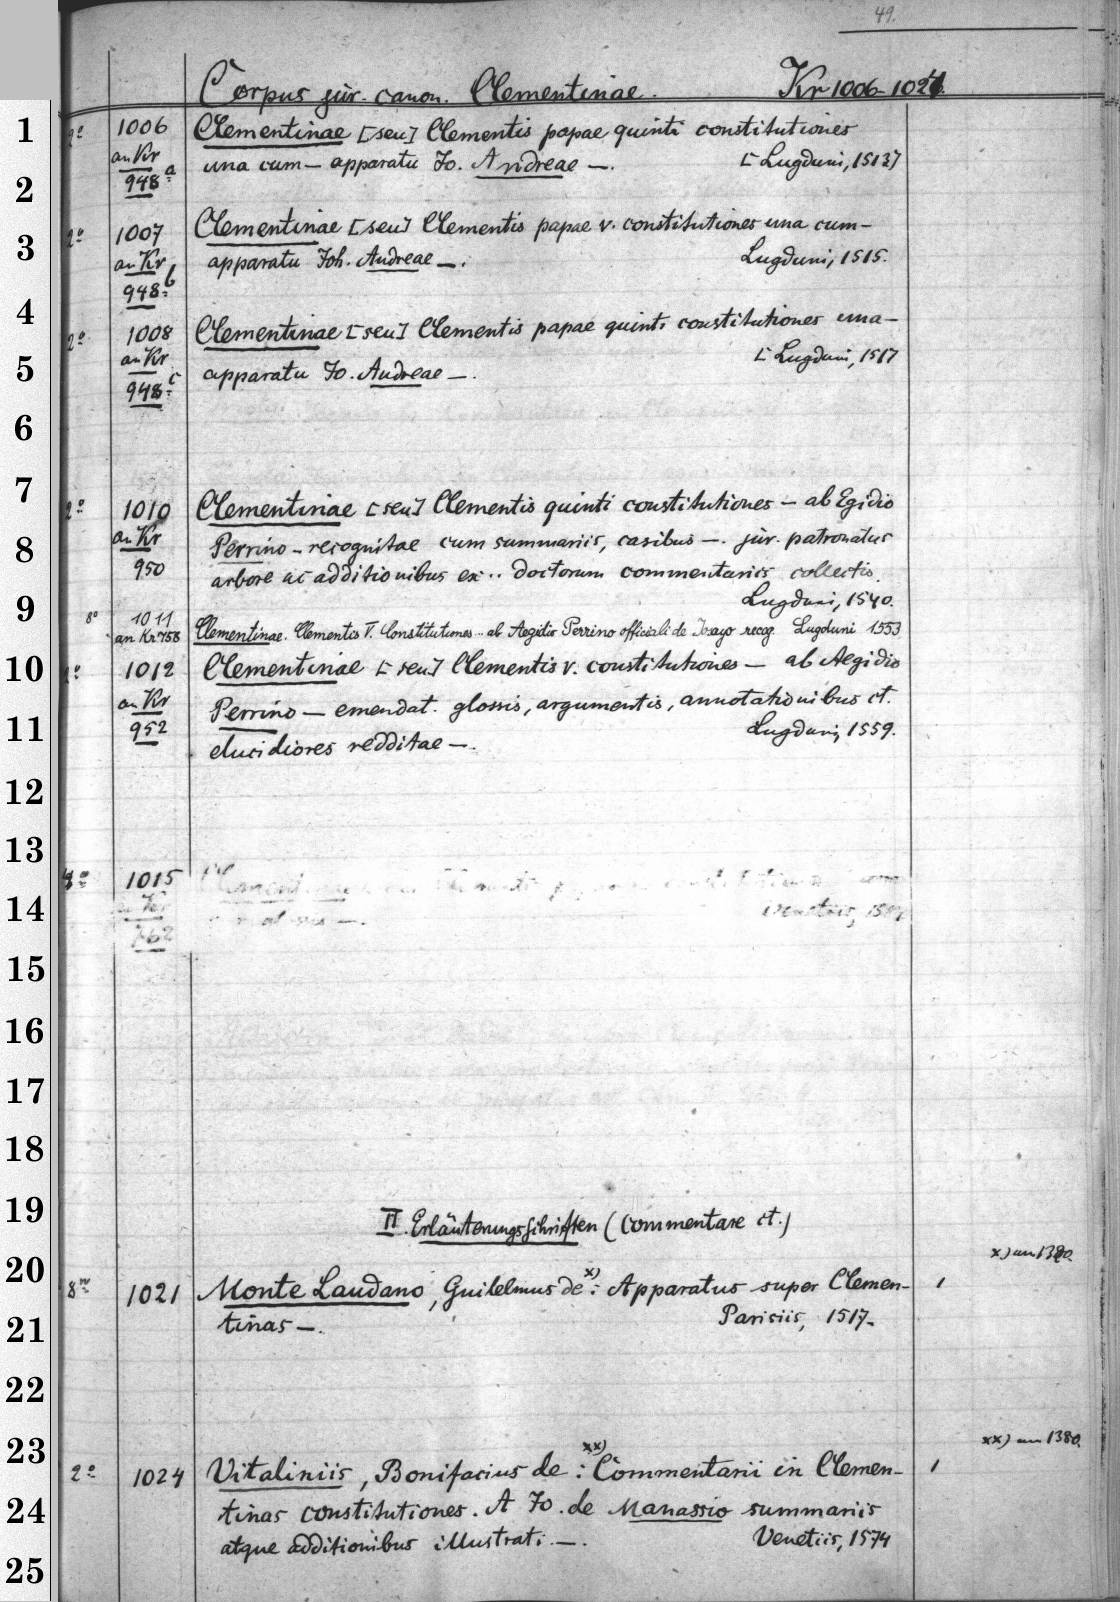 49.
Corpus jur. canon. Clementinae. Kr 1006-1024.
1
2º 1006 Clementinae [seu] Clementis papae quinti constitutiones
an Kr una cum — apparatu Jo. Andreae —. [Lugduni, 1513?]
948 a
2
2º 1007 Clementinae [seu] Clementis papae v. constitutiones una cum —
3
an Kr apparatu Joh. Andreae —. Lugduni, 1515.
948 b
4
2º 1008 Clementinae [seu] Clementis papae quinti constitutiones una —
an Kr [Lugduni, 1517
5
948 c apparatu Jo. Andreae —.
6
7
2º 1010 Clementinae [seu] Clementis quinti constitutiones — ab Egidio
an Kr Perrino — recognitae cum summariis, casibus —. jur. patronatus
8
950 arbore ac additionibus ex .. doctorum commentariis collectis.
Lugduni, 1540.
9
8º 1011 Clementinae. Clementis V. Constitutiones .. ab Aegidio Perrino officiali de recog. Lugduni 1553
an Kr 758
10
2º 1012 Clementinae [seu] Clementis v. constitutiones — ab Aegidio
an Kr Perrino — emendat. glossis, argumentis, annotationibus ct.
11
952 Lugduni, 1559.
elucidiores redditae —.
12
13
4º 1015
14
an Kr Venetiis,
762
15
16
17
18
19
II. Erläuterungsschriften (Commentare ct.)
x) um 1320.
20
8º 1021 Monte Laudano, Guilelmus de x): Apparatus super Clemen- 1
21
tinas —. Parisiis, 1517.
22
xx) um 1380.
23
2º 1024 Vitaliniis, Bonifacius de xx): Commentarii in Clemen- 1
24
tinas constitutiones. A Jo. de Manassio summariis
atque additionibus illustrati. —. Venetiis, 1574
25